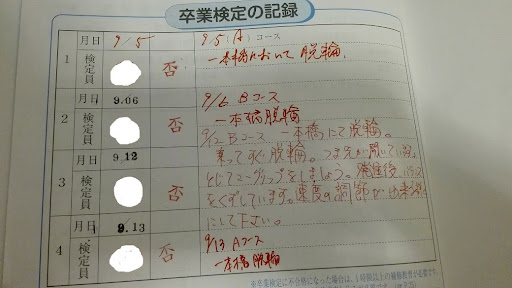 卒業検定の記録
月日 9/5 9/5(A)コース
1 検定員 否 一本橋において脱輪。
月日 9.06 9/6 Bコース
2 検定員 否 一本橋脱輪
9/12 Bコース 一本橋にて脱輪。
月日 9.12 乗ってすぐ脱輪。つま先が開いています。
3 検定員 否 とじてニーグリップをしましょう。発進後バランス
をくずしています。速度の調節が出来る様
月日 9.13 にして下さい。
4 検定員 否 9/13 Aコース
一本橋脱輪
※卒業検定に不合格になった場合は、1時限以上の補修教習が必要です。